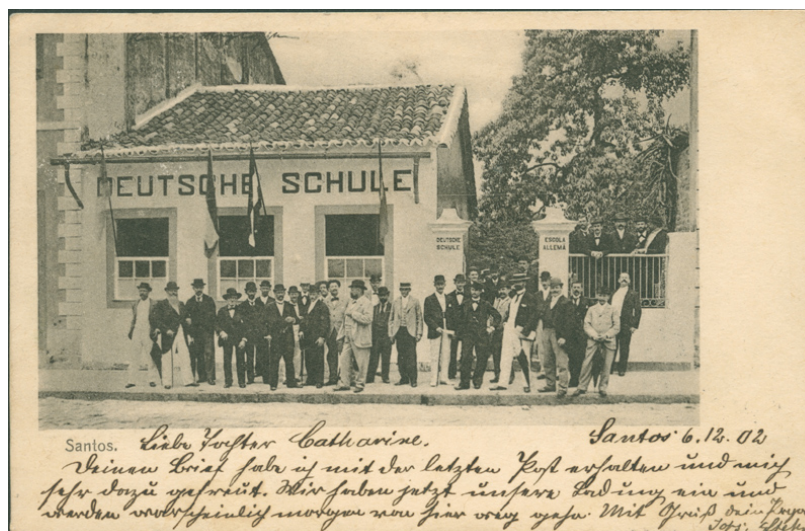 DEUTSCHE SCHULE
DEUTSCHE
SCHULE
ESCOLA
ALLEMÃ
Santos.
Liebe Tochter Catharine.
Santos 6.12.02
Deinen Brief habe ich mit der letzten Post erhalten und mich
sehr dazu gefreut. Wir haben jetzt unsere Ladung ein und
werden warscheinlich morgen von hier weg gehn. Mit Gruß dein
Joh.